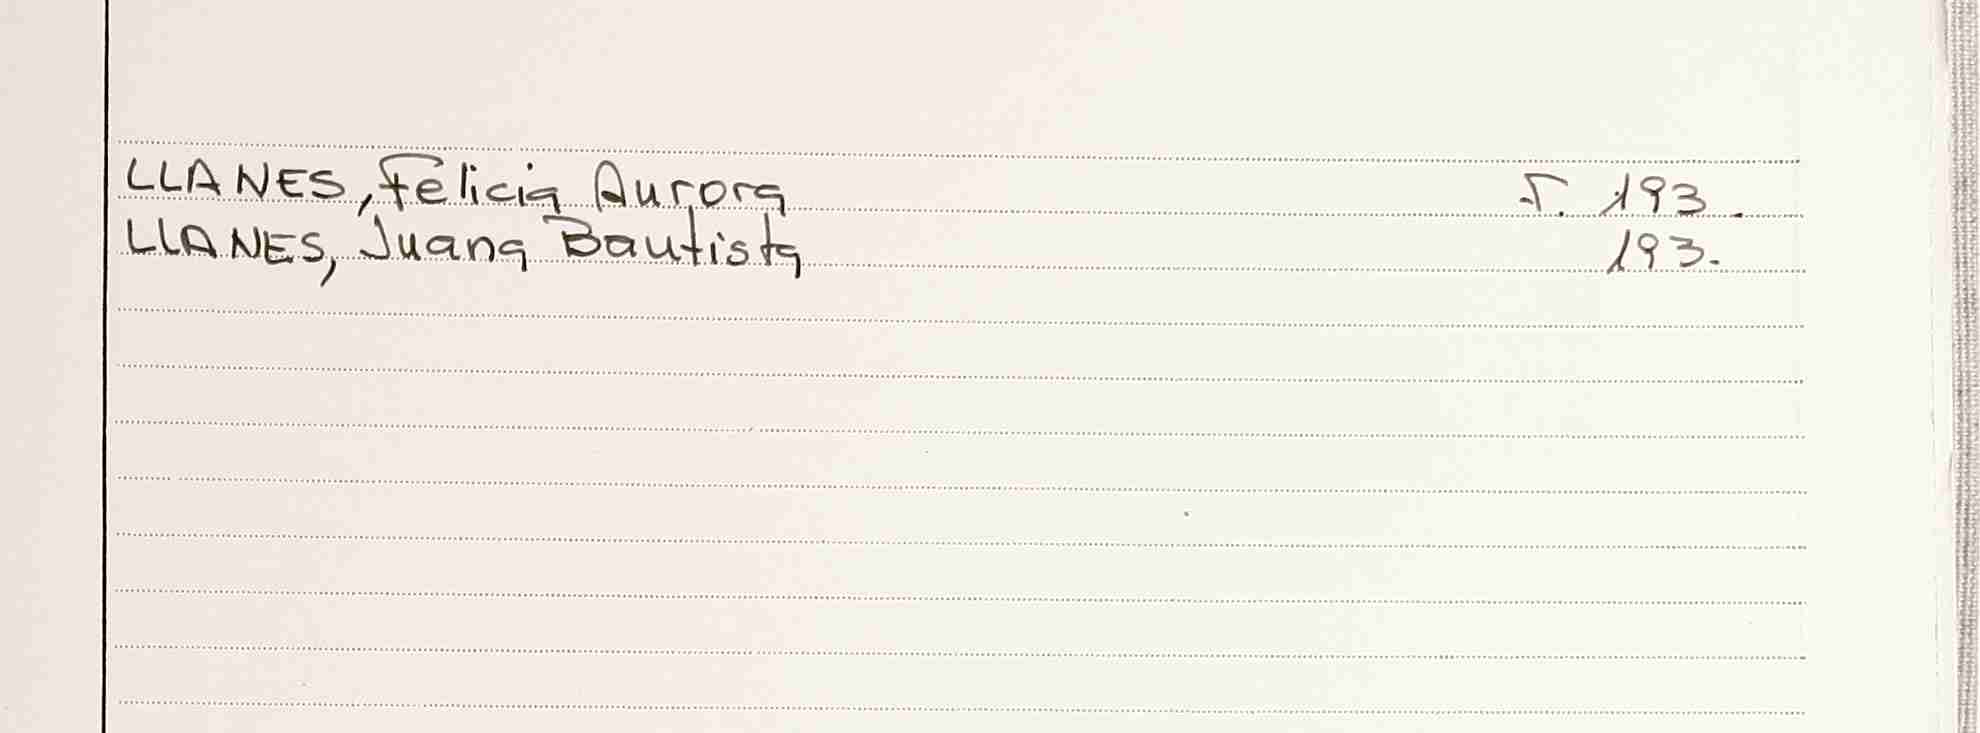 LLANES, Felicia Aurora F. 193.
LLANES, Juana Bautista 193.